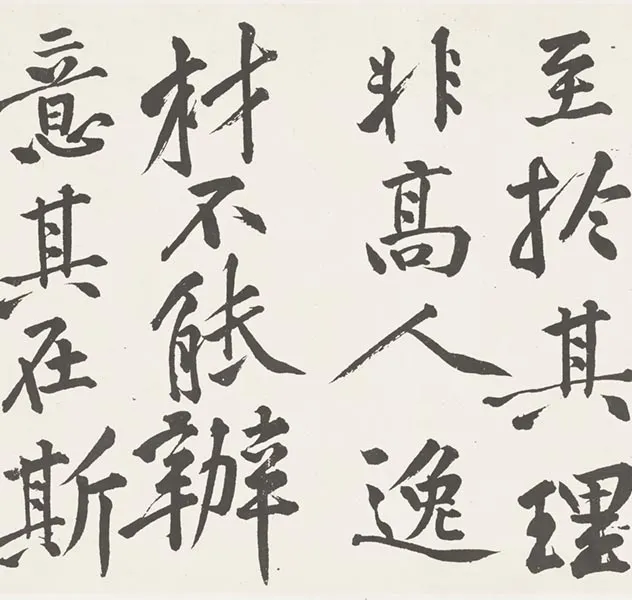 至於其理
非高人逸
材不能辦
意其在斯